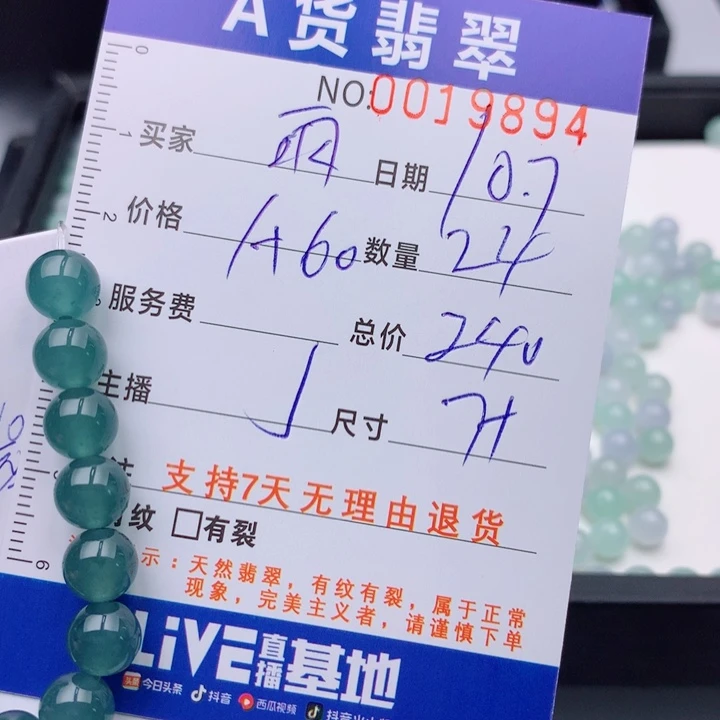 A货翡翠
NO:0019894
买家 雨 日期 10.7
价格 1460 数量 24
服务费 总价 2440
主播 J 尺寸 7H
支持7天无理由退货
有纹 □有裂
示：天然翡翠，有纹有裂，属于正常
现象，完美主义者，请谨慎下单
LiVE直播基地
今日头条 抖音 西瓜视频